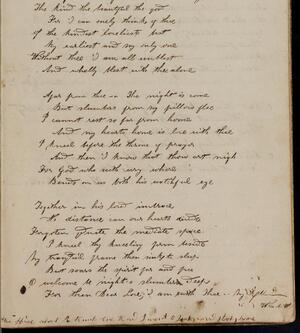 The kind the beautiful the good
For I can only think of thee
Of the kindest loveliest best
My earliest and my only one
Without thee I am all unblest
And wholly blest with thee alone
Afar from thee — The night is come
But slumber from my pillow flee
I cannot rest so far from home
And my hearts home is be with thee
I kneel before the throne of prayer
And then I know that thou art nigh
For God who with every where
Bends on us both his watchful eye
Together in his lov'd
No distance can our hearts divide
Forgotten the mediate space
I kneel thy kneeling form beside
My tranquil frame then sinks to sleep
But soars the spirit far and free
O welcome be night's slumbers deep
For then Dear Love I am with thee — By